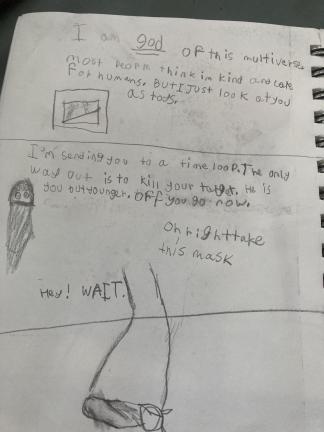 I am god OF this multiverse.
most PeoPle think im kind and cate
For humans. BUt I JUst look at you
as tods.
I'm sending you to a time looP. The only
way out is to kill your target. He is
you but younger. OFF you go now.
Oh right take
this mask
Hey! WAIT.